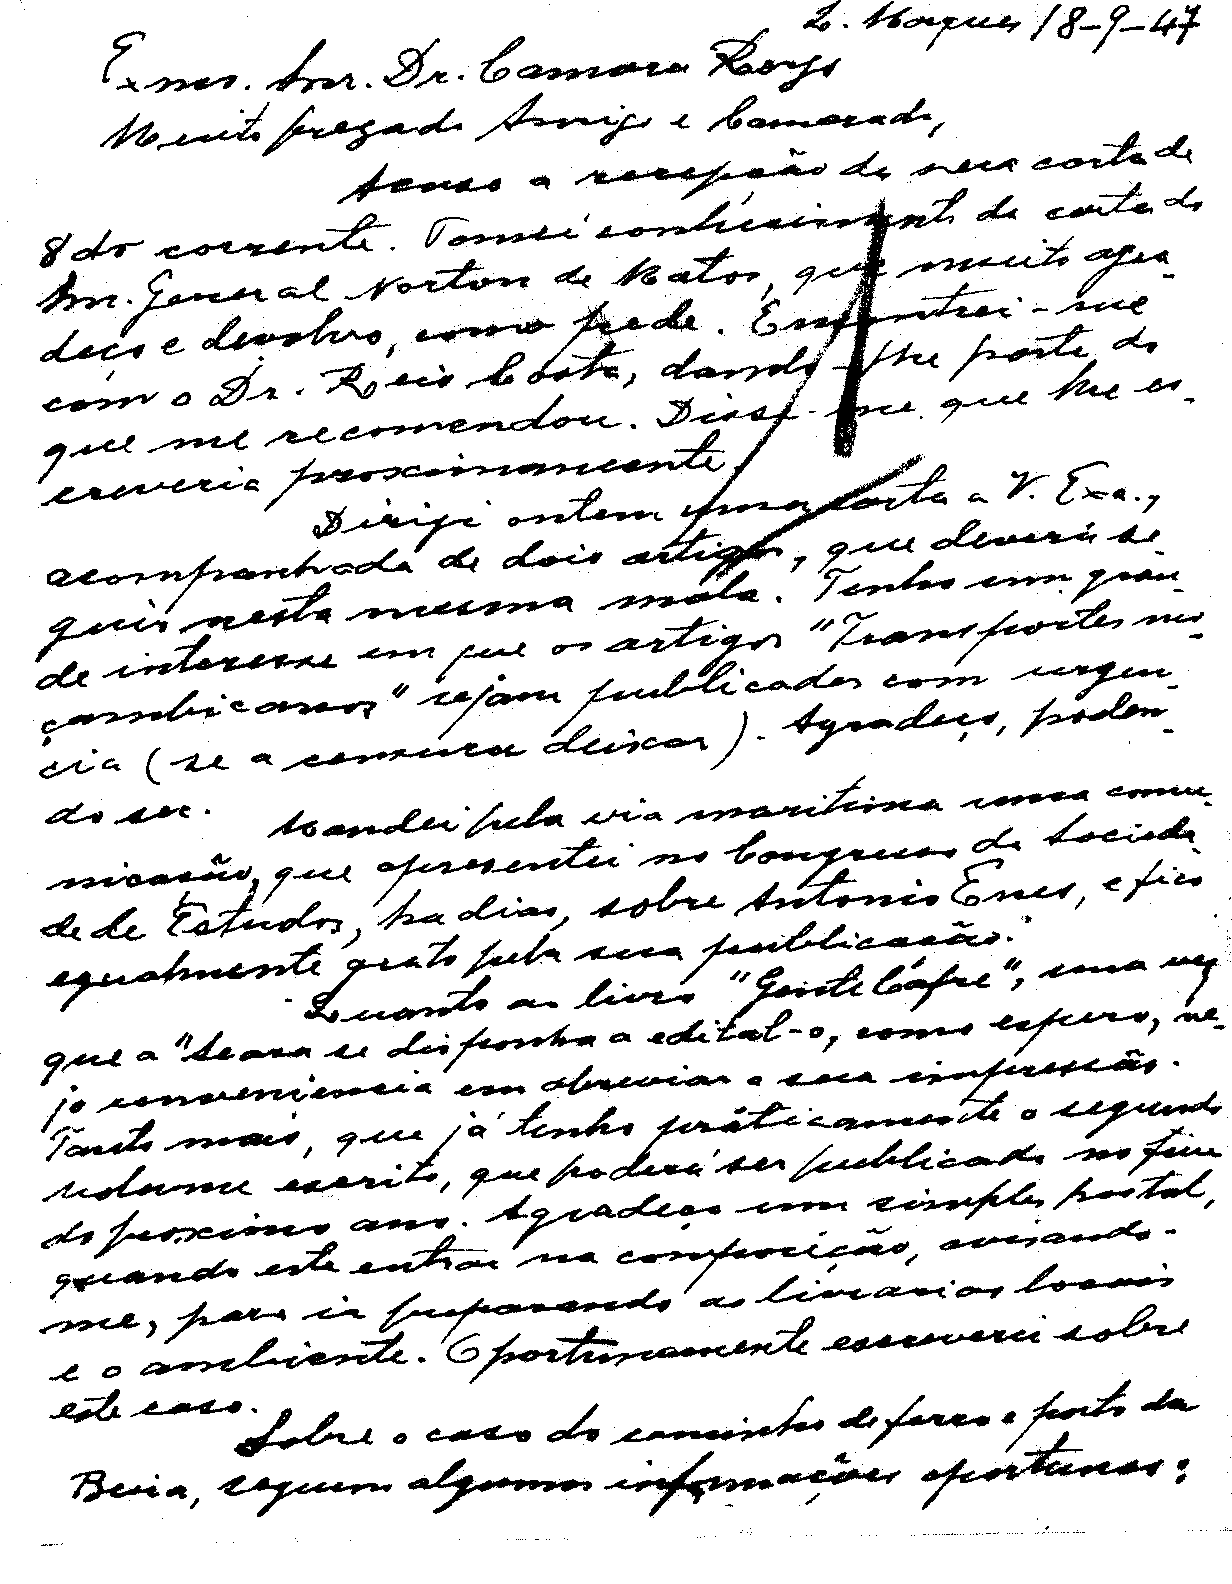 L. Marques 18-9-47
Exmo. Snr. Dr. Camara Reys
Muito prezado Amigo e Camarada,
Acuso a recepção da sua carta de
8 do corrente. Tomei conhecimento da carta do
Snr. General Norton de Matos, que muito agra-
deço e devolvo, como pede. Encontrei-me
com o Dr. Reis Costa, dando-lhe parte do
que me recomendou. Disse-me que lhe es-
creveria proximamente.
Dirigi ontem uma carta a V. Exa.,
acompanhada de dois artigos, que deverá se-
guir nesta mesma mala. Tenho um gran-
de interesse em que os artigos "Transportes mo-
çambicanos" sejam publicados com urgen-
cia (se a censura deixar). Agradeço, poden-
do ser.
Mandei pela via maritima uma comu-
nicação, que apresentei no Congresso da Socieda-
de de Estudos, ha dias, sobre Antonio Enes, e fico
egualmente grato pela sua publicação.
Quanto ao livro "Gente Cafre", uma vez
que a "Seara se disponha a edital-o, como espero, ve-
jo conveniencia em abreviar a sua impressão.
Tanto mais, que já tenho práticamente o segundo
volume escrito, que poderá ser publicado no fim
do proximo ano. Agradeço um simples postal,
quando este entrar na composição, avisando-
me, para ir preparando as livrarias locais
e o ambiente. Oportunamente escreverei sobre
este caso.
Sobre o caso do caminho de ferro e porto da
Beira, seguem algumas informações oportunas: